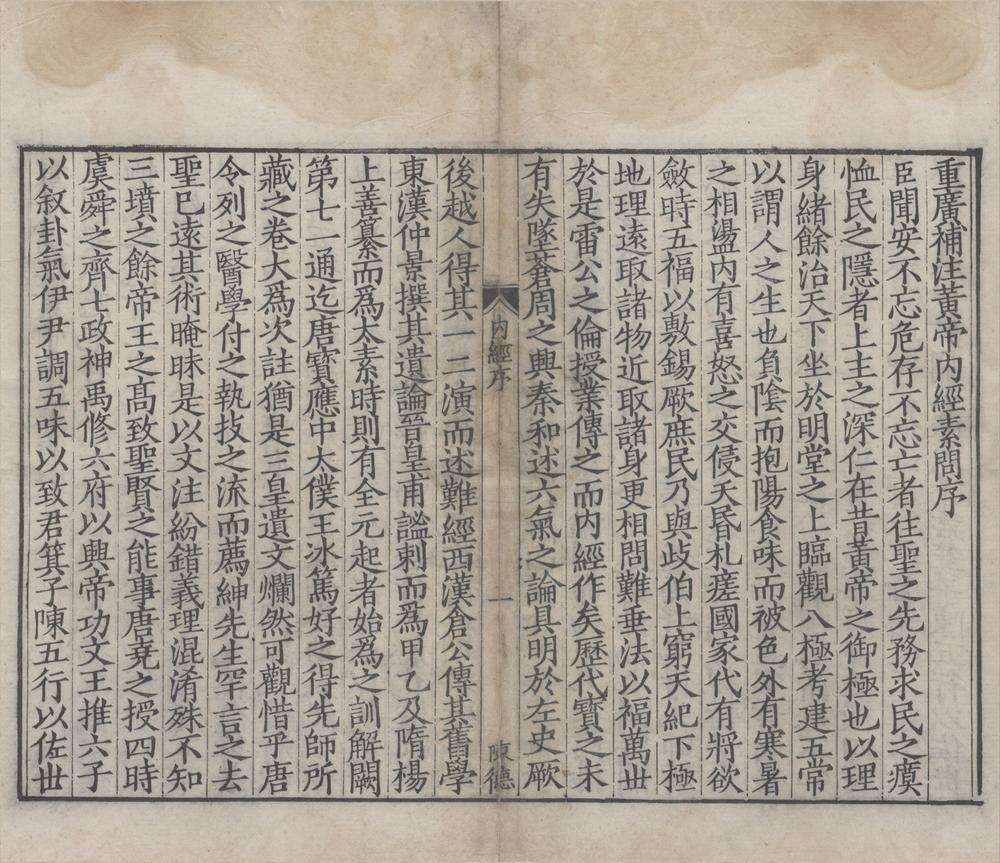 重廣補注黃帝內經素問序
臣聞安不忘危存不忘亡者往聖之先務求民之瘼
恤民之隱者上主之深仁在昔黃帝之御極也以理
身緒餘治天下坐於明堂之上臨觀八極考建五常
以謂人之生也負陰而抱陽食味而被色外有寒暑
之相盪内有喜怒之交侵夭昏札瘥國家代有將欲
斂時五福以敷錫厥庶民乃與歧伯上窮天紀下極
地理遠取諸物近取諸身更相問難垂法以福萬世
於是雷公之倫授業傳之而内經作矣歷代寶之未
有失墜蒼周之興秦和述六氣之論具明於左史厥
内經序
一
陳德
後越人得其一二演而述難經西漢倉公傳其舊學
東漢仲景撰其遺論晉皇甫謐刺而爲甲乙及隋楊
上善纂而爲太素時則有全元起者始爲之訓解闕
第七一通迄唐寶應中太僕王冰篤好之得先師所
藏之卷大爲次註猶是三皇遺文爛然可觀惜乎唐
令列之醫學付之執技之流而薦紳先生罕言之去
聖已遠其術晻昧是以文注紛錯義理混淆殊不知
三墳之餘帝王之髙致聖賢之能事唐堯之授四時
虞舜之齊七政神禹修六府以興帝功文王推六子
以叙卦氣伊尹調五味以致君箕子陳五行以佐世